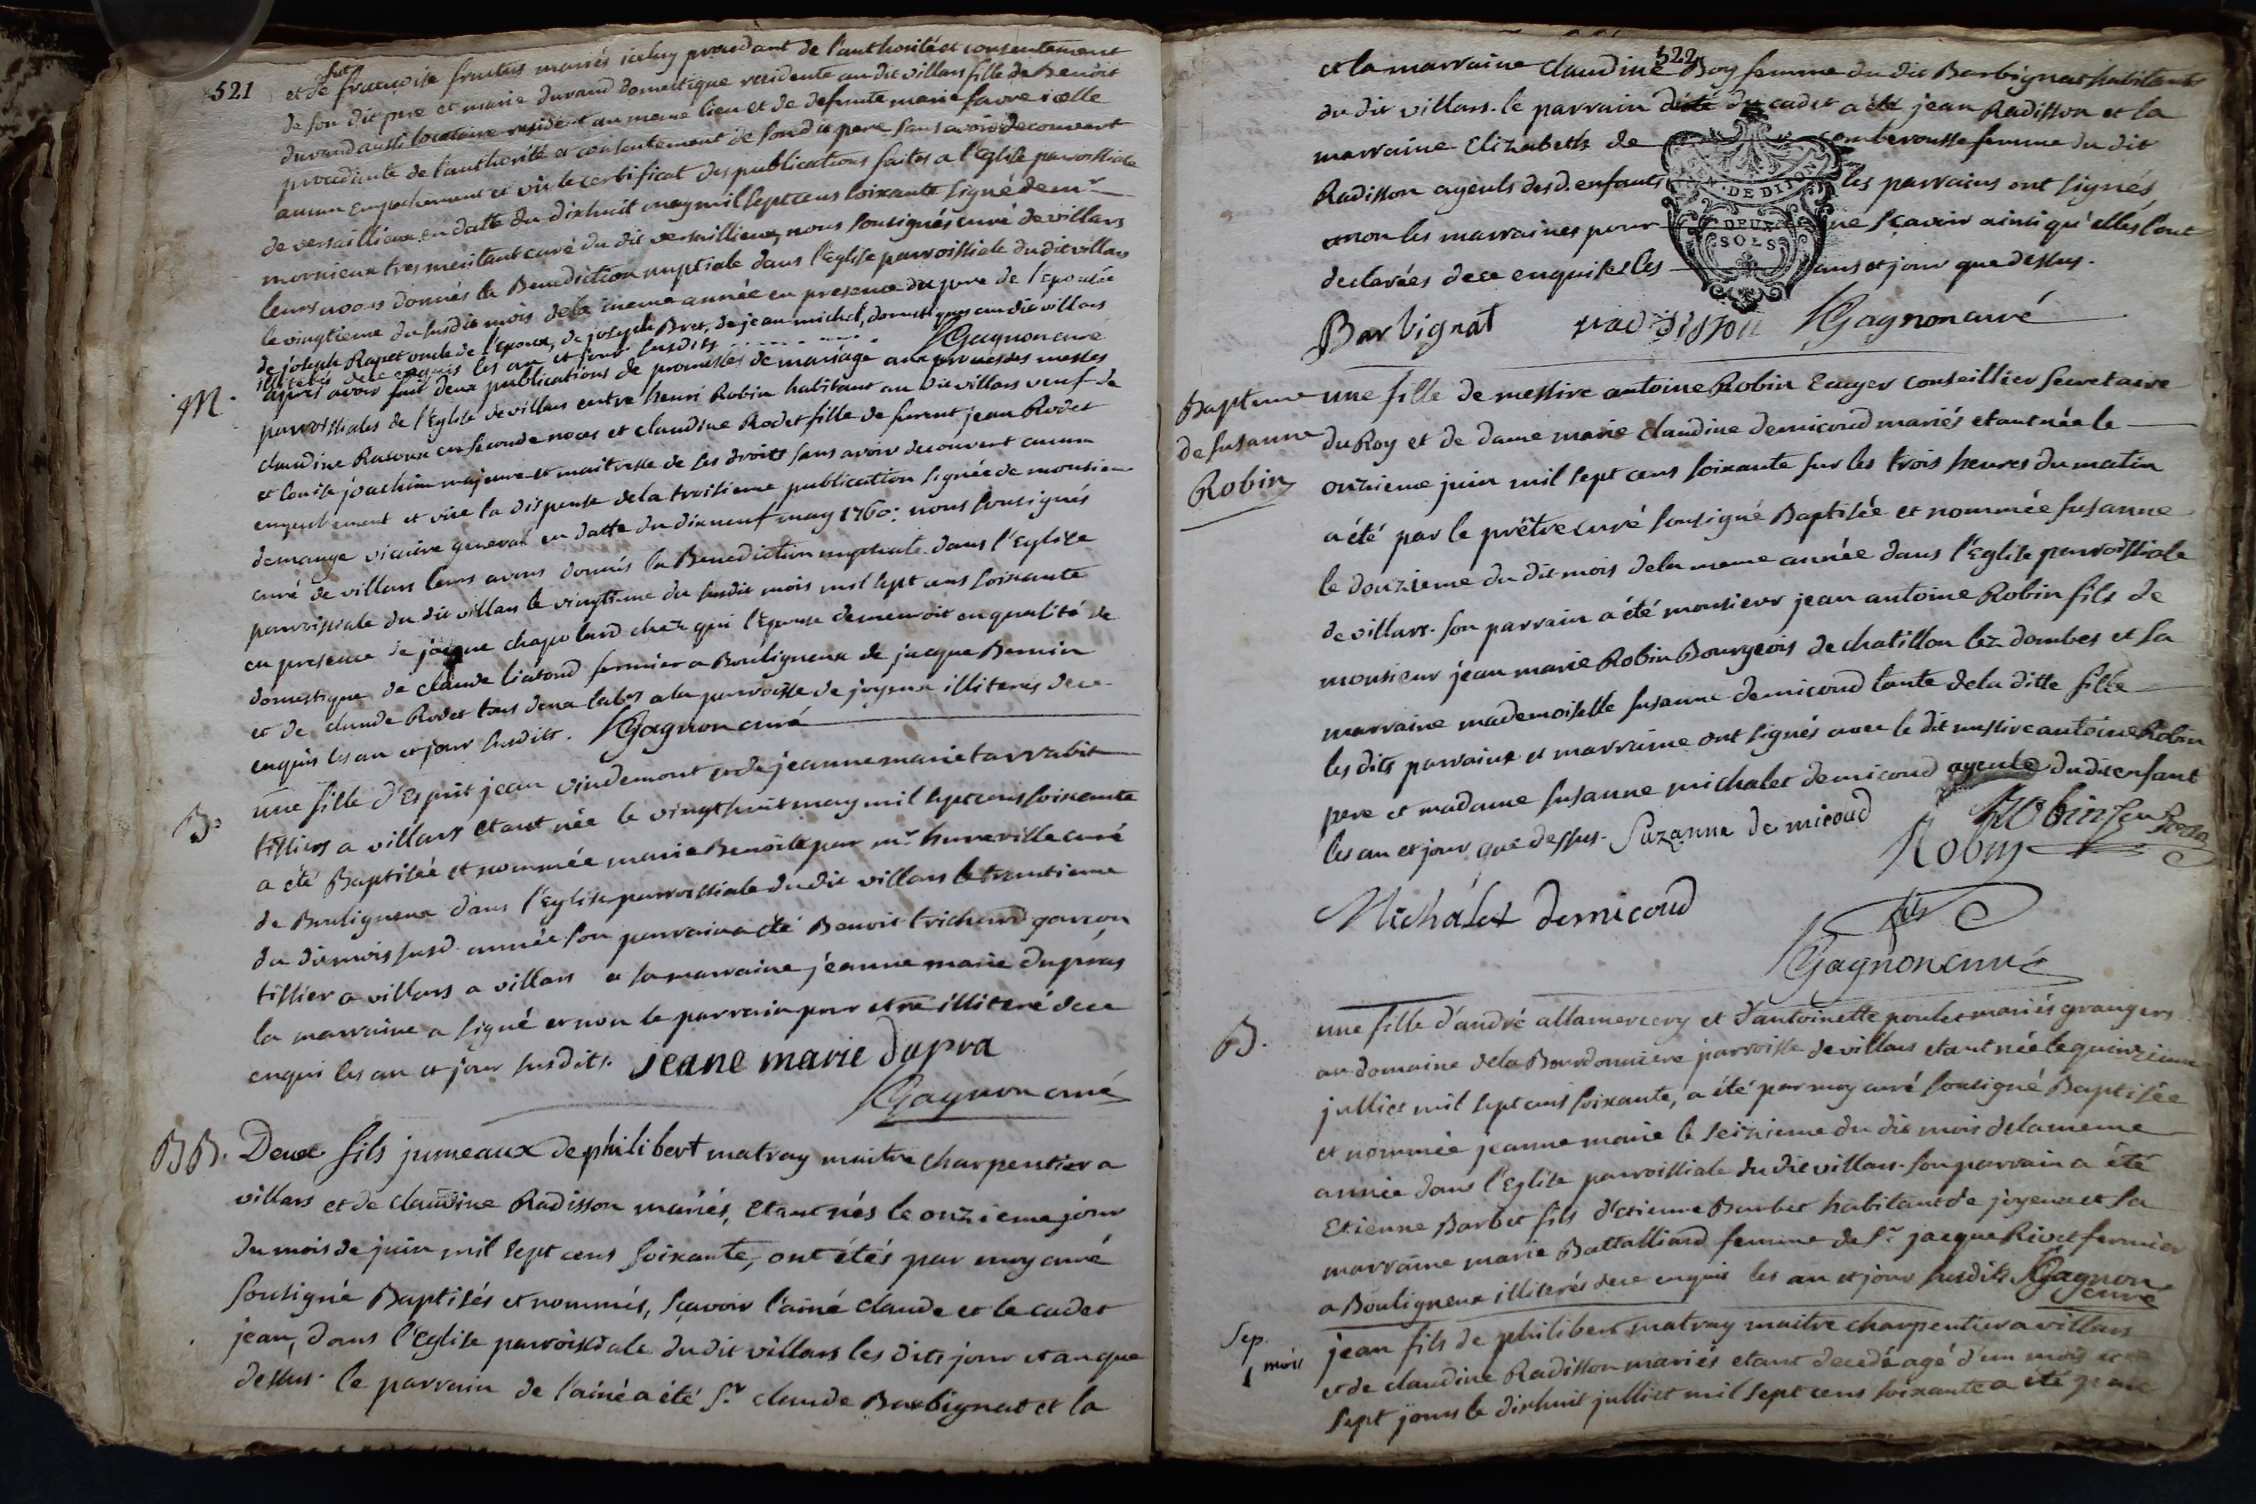 521
et de fut françoise fructus mariés iceluy procedant de l'authorité et consentement
de son dit pere et marie durand domestique residente au dit villars fille de Benoit
durand aussi locataire resident au meme lieu et de defunte marie favre icelle
procedante de l'authorité et consentement de son dit pere sans avoir decouvert
aucun empechement et vû le certificat des publications faites a l'Eglise parroissiale
de versaillieux en datte du dixhuit may mil sept cens soixante signé de mr
mornieux tres meritant curé du dit versaillieux, nous sousignés curé de villars
leurs avons donnés la Benediction nuptiale dans l'Eglise parroissiale du dit villars
le vingtieme du susdit mois de la meme année en presence du pere de l'Epouse
de joseph Rapet oncle de l'Epoux, de joseph Bret, de jean michel, domestiques au dit villars
illiterés de ce enquis les an et jour susdits . . . . . . . . Gagnon curé
M. après avoir fait deux publications de promesses de mariage aux prones des messes
parroissiales de l'Eglise de villars entre henri Robin habitant au dit villars veuf de
claudine Ravoux en seconde noces et claudine Rodet fille de furent jean Rodet
et louise joachim majeure et maitresse de ses droits sans avoir decouvert aucun
empechement et vûe la dispense de la troisieme publication signée de monsieur
demange vicaire general en datte du dixneuf may 1760: nous sousignés
curé de villars leurs avons donnés la Benediction nuptiale dans l'Eglise
parroissiale du dit villars le vingtieme du susdit mois mil sept cens soixante
en presence de jacque chapolard chez qui l'Epouse demeuroit en qualité de
domestique de claude liatoud fermier a Bouligneux de jacque Bernin
et de claude Rodet tous deux labrs a la parroisse de joyeux illiterés de ce
enquis les an et jour susdits. Gagnon curé
B. une fille d'Esprit jean vindemont et de jeanne marie tarrabit
tissiers a villars etant née le vingthuit may mil sept cens soixante
a été Baptisée et nommée marie Benoite par mr. huneville curé
de Bouligneux dans l'Eglise parroissiale du dit villars le trentieme
du dit mois susd. année son parrain a été Benoit trichard garçon
tissier a villars a villars et sa marraine jeanne marie dupras
la marraine a signé et non le parrain pour etre illiteré de ce
enquis les an et jour susdits. jeane marie dupra
Gagnon curé
BB. Deux fils jumeaux de philibert matray maitre charpentier a
villars et de claudine Radisson mariés, etant nés le onzieme jour
du mois de juin mil sept cens soixante, ont étés par moy curé
sousigné Baptisés et nommés, sçavoir l'ainé claude et le cadet
jean, dans l'Eglise parroissiale du dit villars les dits jour et an que
dessus. le parrain de l'ainé a été Sr claude Barbignat et la
522
et la marraine claudine Boy femme du dit Barbignat habitants
du dit villars. le parrain du cadet a été jean Radisson et la
marraine Elizabeth de comberousse femme du dit
Radisson ayeuls des d. enfants les parrains ont signés
et non les marraines pour ne sçavoir ainsi qu'elles l'ont
declarées de ce enquises les ans et jour que dessus.
GEN. DE DIJON
DEUX
SOLS
Barbignat radisson Gagnon curé
Bapteme de susanne Robin
une fille de messire antoine Robin Ecuyer conseillier secretaire
du Roy et de dame marie claudine demicoud mariés etant née le
onzieme juin mil sept cens soixante sur les trois heures du matin
a été par le prêtre curé sousigné Baptisée et nommée susanne
le douzieme du dit mois de la meme année dans l'Eglise parroissiale
de villars. son parrain a été monsieur jean antoine Robin fils de
monsieur jean marie Robin Bourgeois de chatillon lez dombes et sa
marraine mademoiselle susanne demicoud tante de la ditte fille
les dits parrain et marraine ont signés avec le dit messire antoine Robin
pere et madame susanne michalet demicoud ayeule du dit enfant
les an et jour que dessus. Suzanne de micoud Robin
Robin
Michalet demicoud fils
Gagnon curé
B. une fille d'andré allamercery et d'antoinette poulet mariés grangers
au domaine de la Bourdonniere parroisse de villars etant née le quinzieme
julliet mil sept cens soixante, a été par moy curé sousigné Baptisée
et nommée jeanne marie le seizieme du dit mois de la meme
année dans l'Eglise parroissiale du dit villars. son parrain a été
Etienne Barbet fils d'etienne Barbet habitant de joyeux et sa
marraine marie Battalliard femme de Sr jacque Rivet fermier
a Bouligneux illiterés de ce enquis les an et jour susdits Gagnon
curé
Sep. 1 mois
jean fils de philibert matray maitre charpentier a villars
et de claudine Radisson mariés etant decedé agé d'un mois et
sept jours le dixhuit julliet mil sept cens soixante a été